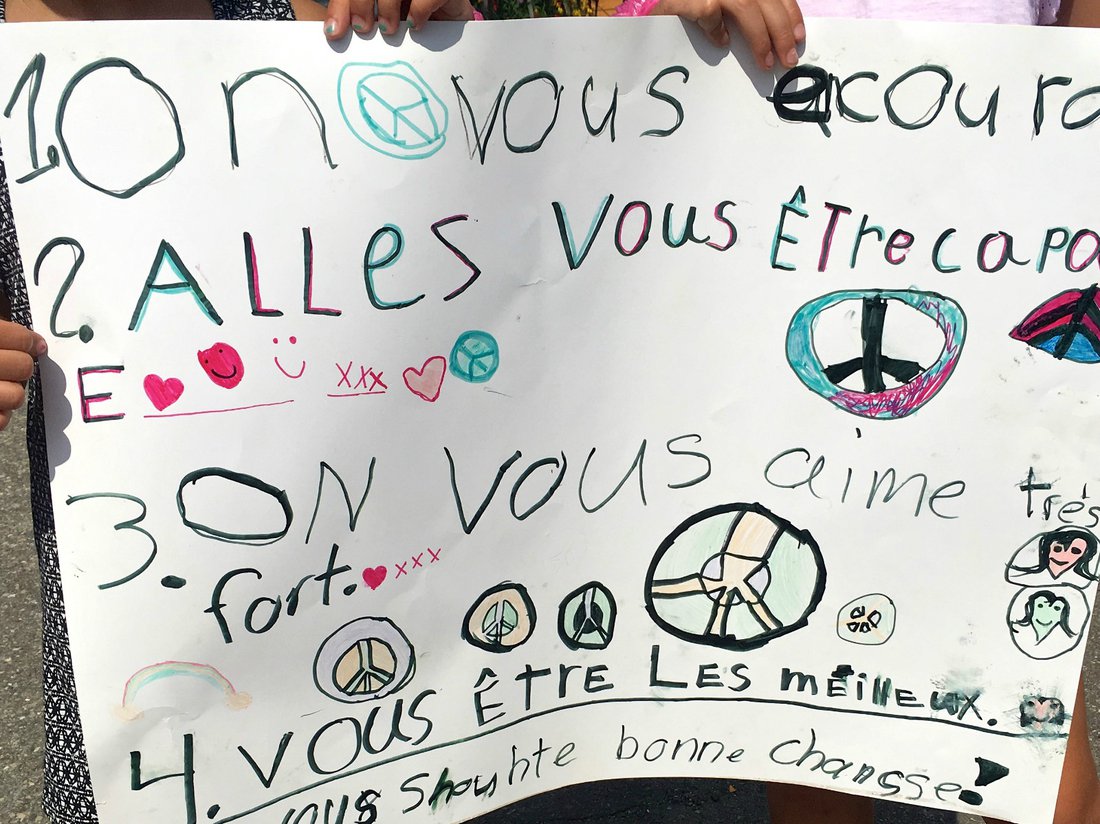 1. On vous encoura
2. ALLes vous ÊTre capa
E xxx
3. ON vous aime très
fort. xxx
4. vous être Les meilleux.
vous shouhte bonne changsse!